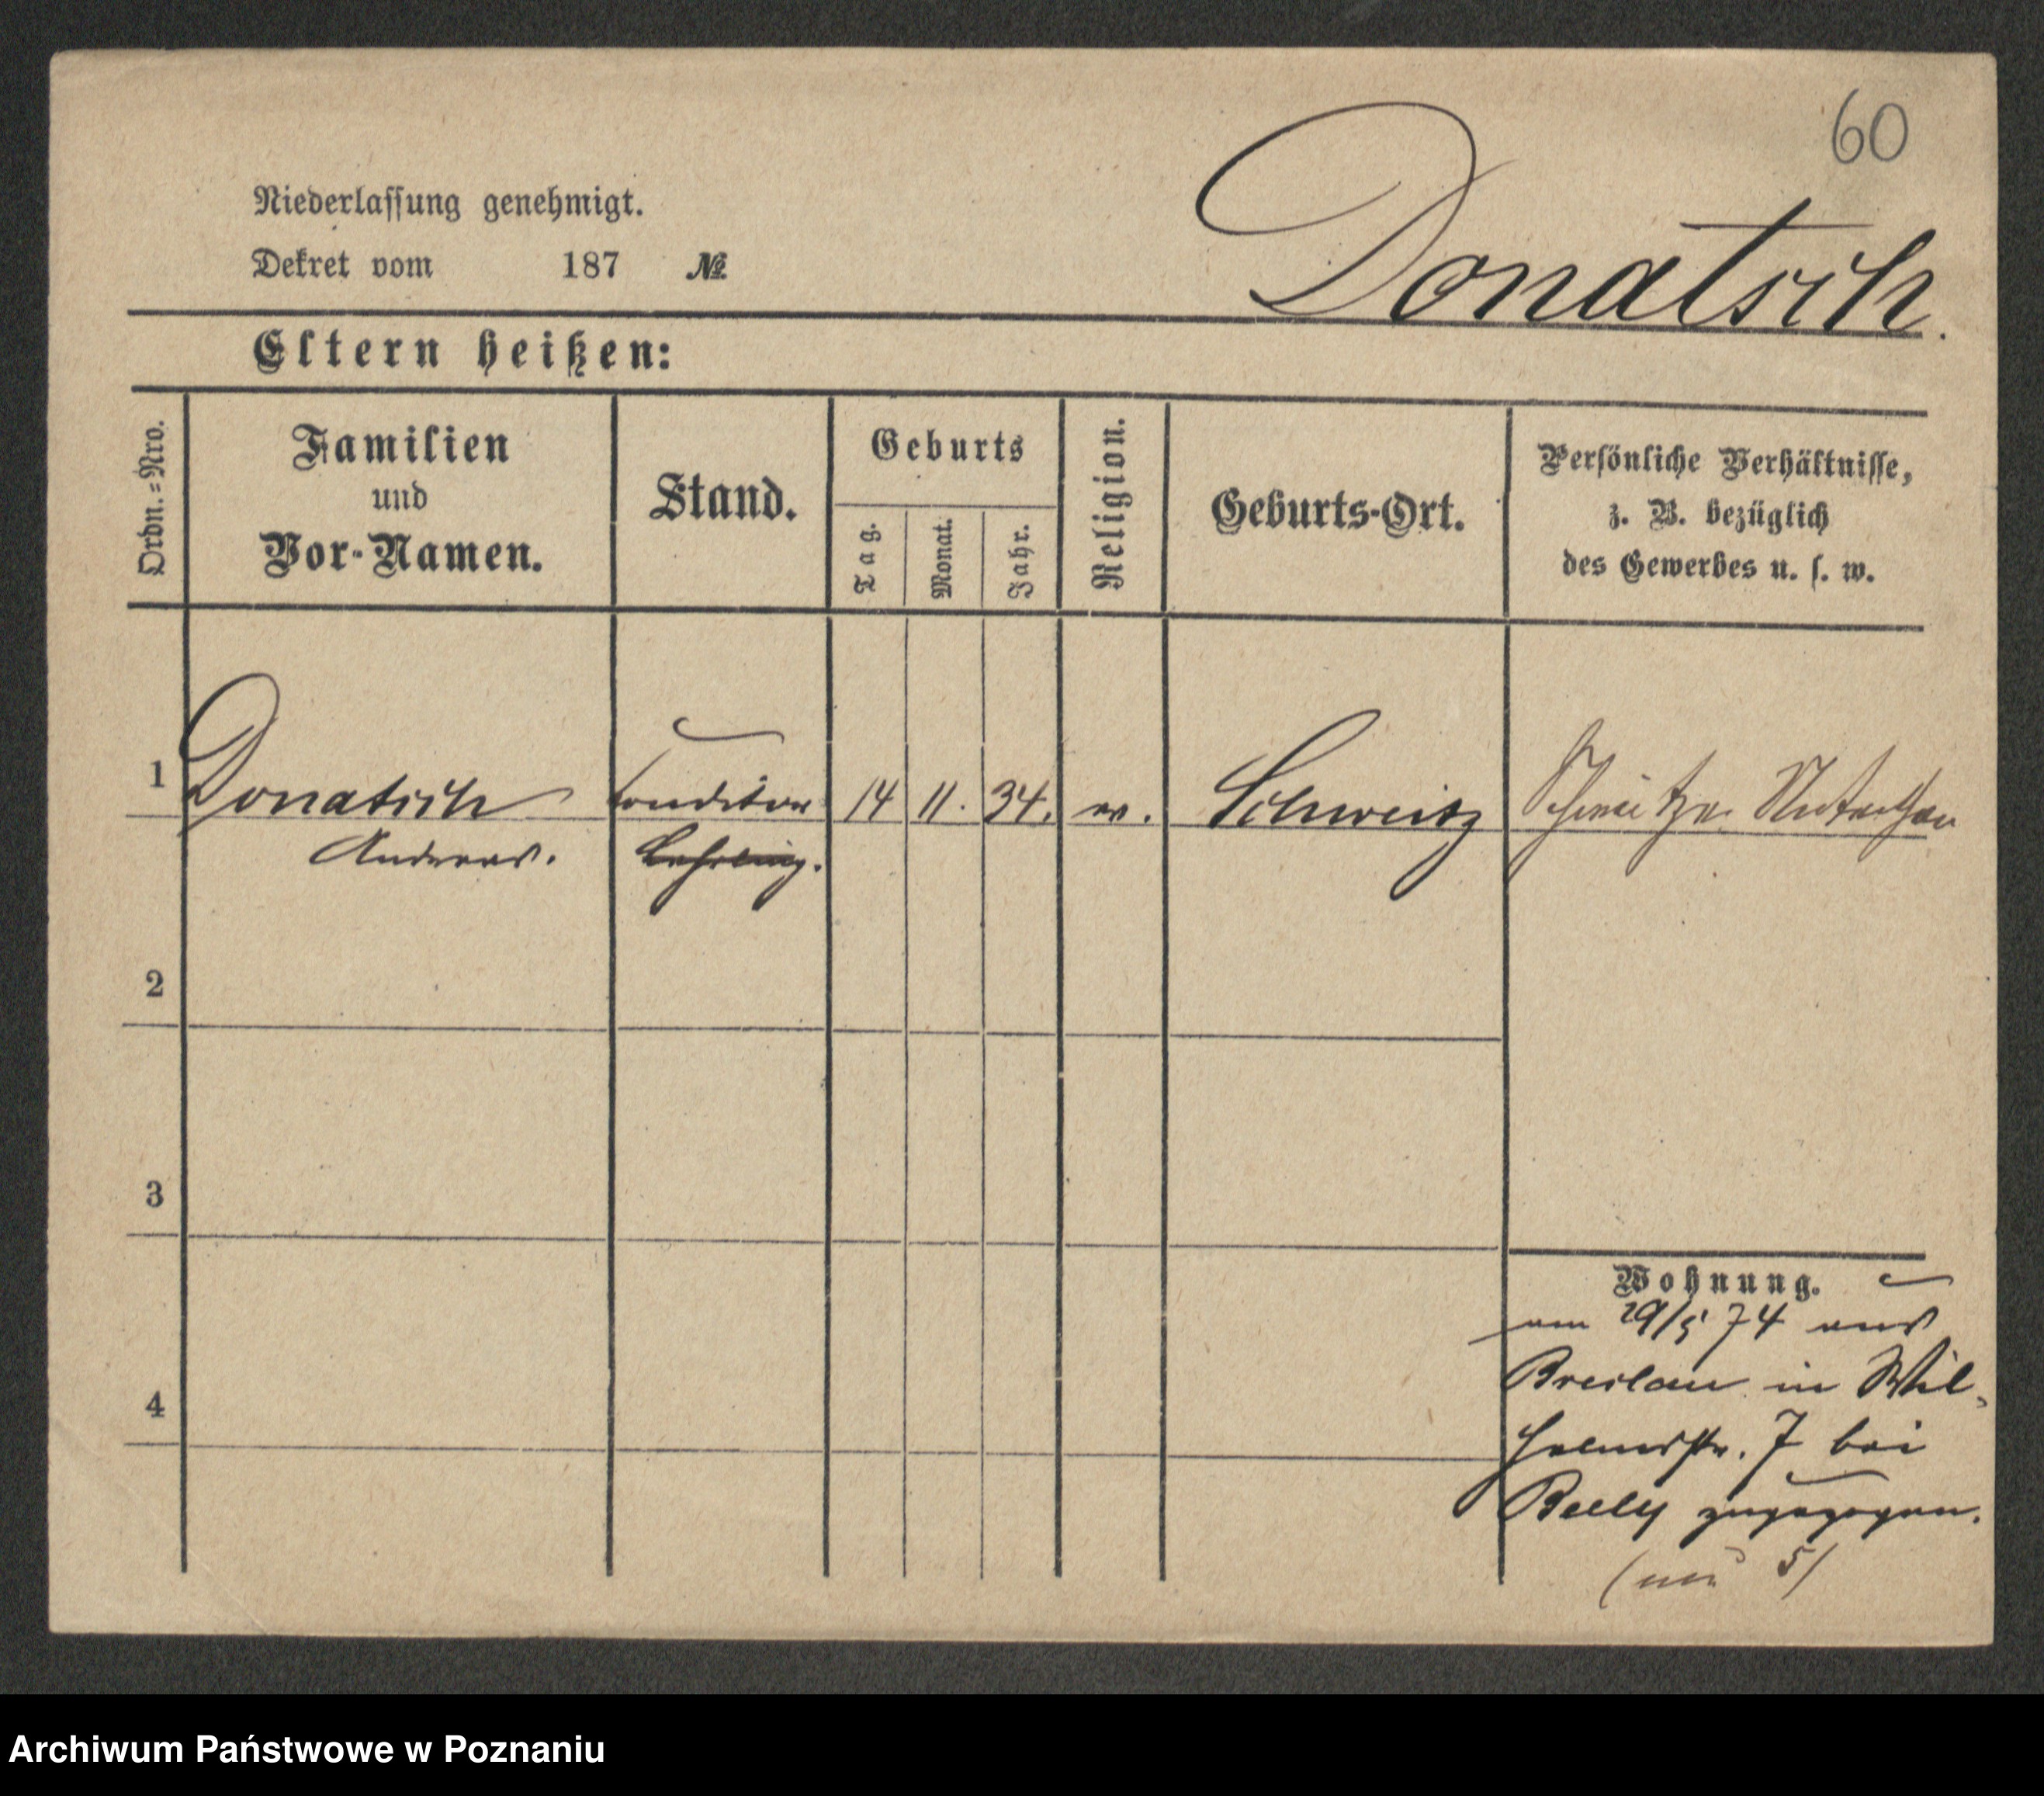 60
Donatsch.
Niederlassung genehmigt.
Dekret vom 187 №
Eltern heißen:
Ordn.=Nro.
Familien
und
Vor-Namen.
Stand.
Geburts
Tag.
Monat.
Jahr.
Religion.
Geburts-Ort.
Persönliche Verhältnisse,
z. B. bezüglich
des Gewerbes u. s. w.
1 Donatsch Conditor 14 11. 34. ev. Schweitz
Andreas. Lehrling.
2
3
4
Wohnung.
am 29/5 74 aus
Breslau in Wil-
helmsstr. 7 bei
Beely zugezogen.
(nun 5)
Archiwum Państwowe w Poznaniu